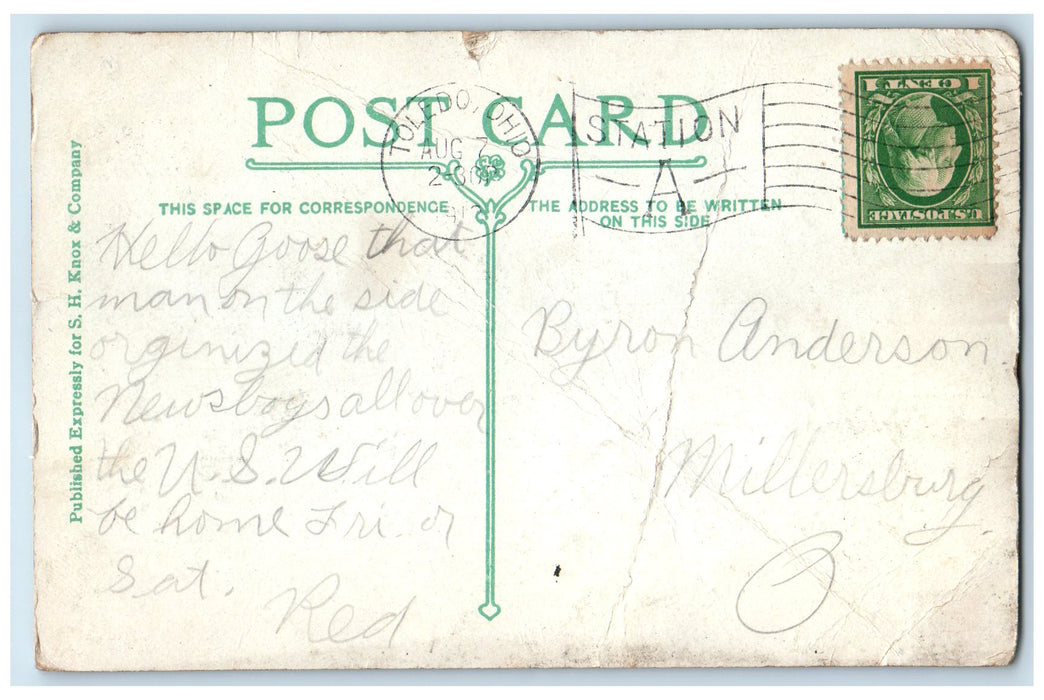 POST CARD
TOLEDO, OHIO
AUG 7
STATION
A
1 CENT 1
U.S. POSTAGE
THIS SPACE FOR CORRESPONDENCE
THE ADDRESS TO BE WRITTEN
ON THIS SIDE
Published Expressly for S. H. Knox & Company
Hello Goose that
man on the side
orginized the
Newsboys all over
the U.S. Will
be home Fri. or
Sat.
Red
Byron Anderson
Millersburg
O